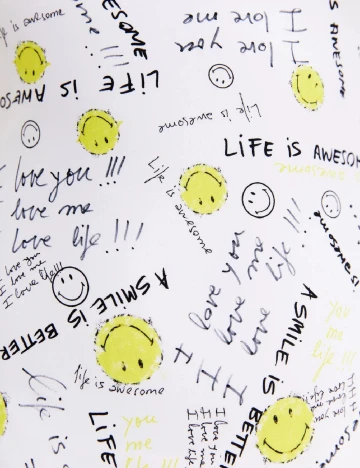 Life is awesome
me !!!
AWESOME
I love me
I love you
IS AWESOME
LiFE iS AWESO
Life is awesome
LiFE iS AWESOM
awesome
love you !!!
love me
love life !!!
Life is awesome
I love you
I love me
I love life!!!
I love you
I love me
I love life !!!
AWESOME
A SMILE IS BETTER
A SMILE IS BETTE
you
me
life !!!
life is awesome
Life is
LiFE
you
me
life !!!
I love you
I love me
I love life